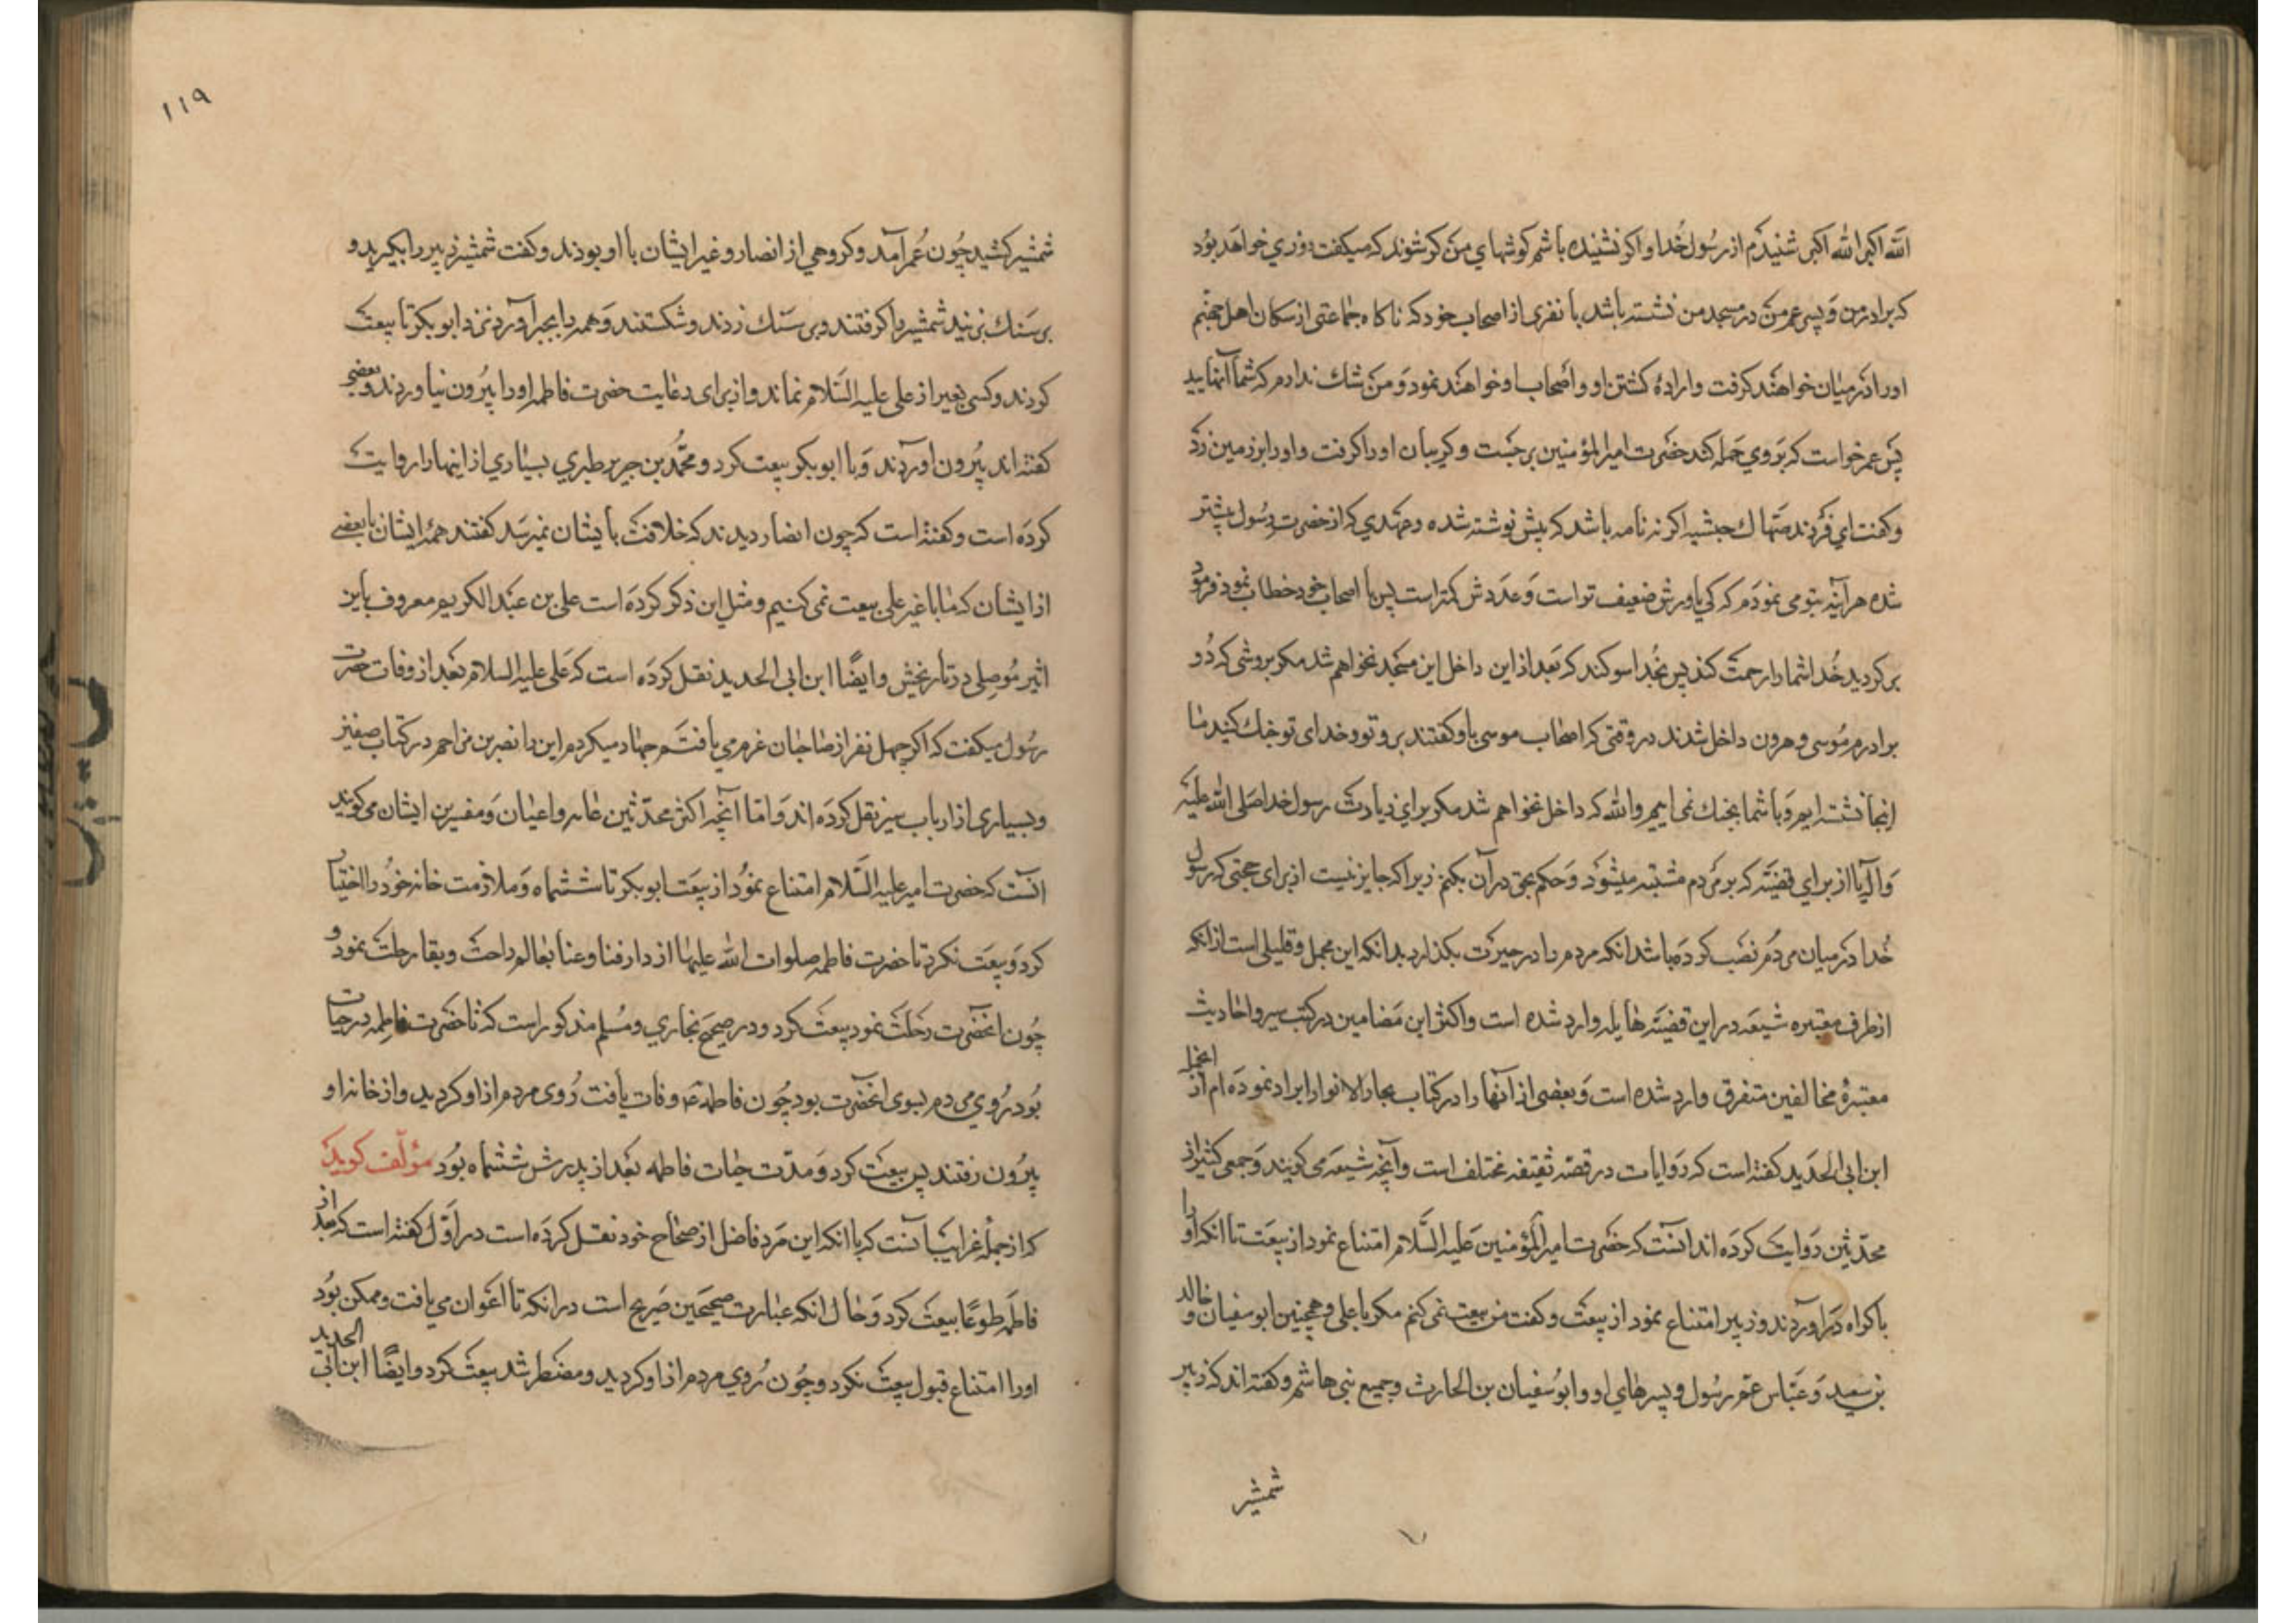 الله اکبر الله اکبر شنیدم از رسول خدا و اکر نشنیده باشم کوشهای من کر شوند که میکفت روزی خواهد بود
که برادر من و پسر عم من در مسجد من نشسته باشد با نفری از اصحاب خود که ناکاه جماعتی از سکان اهل جهنم
او را در میان خواهند کرفت و ارادهٔ کشتن او و اصحاب او خواهند نمود و من شك ندارم که شما آنهایید
پس عمر خواست که بر وی حمله کند حضرت امیر المؤمنین برجست و کریبان او را کرفت و او را بر زمین زد
و کفت ای فرزند صهاك حبشیه اکر نه نامه باشد که پیش نوشته شده و عهدی که از حضرت رسول پیشتر
شده هر آینه بتو می نمودم که کی یاورش ضعیف تر است و عددش کمتر است پس با اصحاب خود خطاب نمود فرمود
بر کردید خدا شما را رحمت کند پس بخدا سوکند که بعد از این داخل این مسجد نخواهم شد مکر بروشی که دو
برادرم موسی و هرون داخل شدند در وقتی که اصحاب موسی باو کفتند برو تو و خدای تو جنك کنید ما
اینجا نشسته ایم و با شما بجنك نمی اییم والله که داخل نخواهم شد مکر برای زیارت رسول خدا صلی الله علیه
و آله یا از برای قضیّه که بر مردم مشتبه میشود و حکم بحق در آن بکنم زیرا که جایز نیست از برای حجتی که رسول
خدا در میان مردم نصب کرده باشد انکه مردم را در حیرت بکذارد بدانکه این مجمل و قلیلی است از انکه
از طرف معتبره شیعه در این قضیّه هایله وارد شده است و اکثر این مضامین در کتب سیر و احادیث
معتبرهٔ مخالفین متفرق وارد شده است و بعضی از آنها را در کتاب بحار الانوار ایراد نموده ام از انجمله
ابن ابی الحدید کفته است که روایات در قصّه ثقیفه مختلف است و آنچه شیعه می کویند و جمعی کثیر از
محدثین روایت کرده اند آنست که حضرت امیر المؤمنین علیه السّلام امتناع نمود از بیعت تا انکه او را
باکراه در آوردند و زبیر امتناع نمود از بیعت و کفت من بیعت نمی کنم مکر با علی و همچنین ابو سفیان و خالد
بن سعید و عبّاس عمّ رسول و پسرهای او و ابو سفیان بن الحارث و جمیع بنی هاشم و کفته اند که زبیر
شمشیر
۱۱۹
شمشیر کشید چون عمر آمد و کروهی از انصار و غیر ایشان با او بودند و کفت شمشیر زبیر را بکیرید و
بر سنك بزنید شمشیر را کرفتند و بر سنك زدند و شکستند و همه را بجبر آوردند نزد ابو بکر تا بیعت
کردند و کسی بغیر از علی علیه السّلام نماند و از برای رعایت حضرت فاطمه او را بیرون نیاوردند و بعضی
کفته اند بیرون اوردند و با ابو بکر بیعت کرد و محمّد بن جریر طبری بسیاری از اینها را روایت
کرده است و کفته است که چون انصار دیدند که خلافت بایشان نمیرسد کفتند همهٔ ایشان یا بعضی
از ایشان که ما با غیر علی بیعت نمی کنیم و مثل این ذکر کرده است علی بن عبد الکریم معروف باین
اثیر موصلی در تاریخش و ایضًا ابن ابی الحدید نقل کرده است که علی علیه السلام بعد از وفات حضرت
رسول میکفت که اکر چهل نفر از صاحبان عزم می یافتم جهاد میکردم این را نصر بن مزاحم در کتاب صفین
و بسیاری از ارباب سیر نقل کرده اند و امّا آنچه اکثر محدّثین عامه و اعیان و مفسرین ایشان می کویند
آنست که حضرت امیر علیه السّلام امتناع نمود از بیعت ابو بکر تا ششماه و ملازمت خانه خود را اختیار
کرد و بیعت نکرد تا حضرت فاطمه صلوات الله علیها از دار فنا و عنا بعالم راحت و بقا رحلت نمود و
چون انحضرت رحلت نمود بیعت کرد و در صحیح بخاری و مسلم مذکور است که تا حضرت فاطمه در حیات
بود روی مردم بسوی انحضرت بود چون فاطمه ع وفات یافت روی مردم از او کردید و از خانه او
بیرون رفتند پس بیعت کرد و مدّت حیات فاطمه بعد از پدرش ششماه بود مؤلّف کوید
که از جملهٔ غرایب آنست که با انکه این مرد فاضل از صحاح خود نقل کرده است در اوّل کفته است که بعد از
فاطمه طوعًا بیعت کرد و حال انکه عبارت صحیحین صریح است در انکه تا اعوان می یافت و ممکن بود
او را امتناع قبول بیعت نکرد و چون روی مردم از او کردید و مضطر شد بیعت کرد و ایضًا ابن ابی الحدید